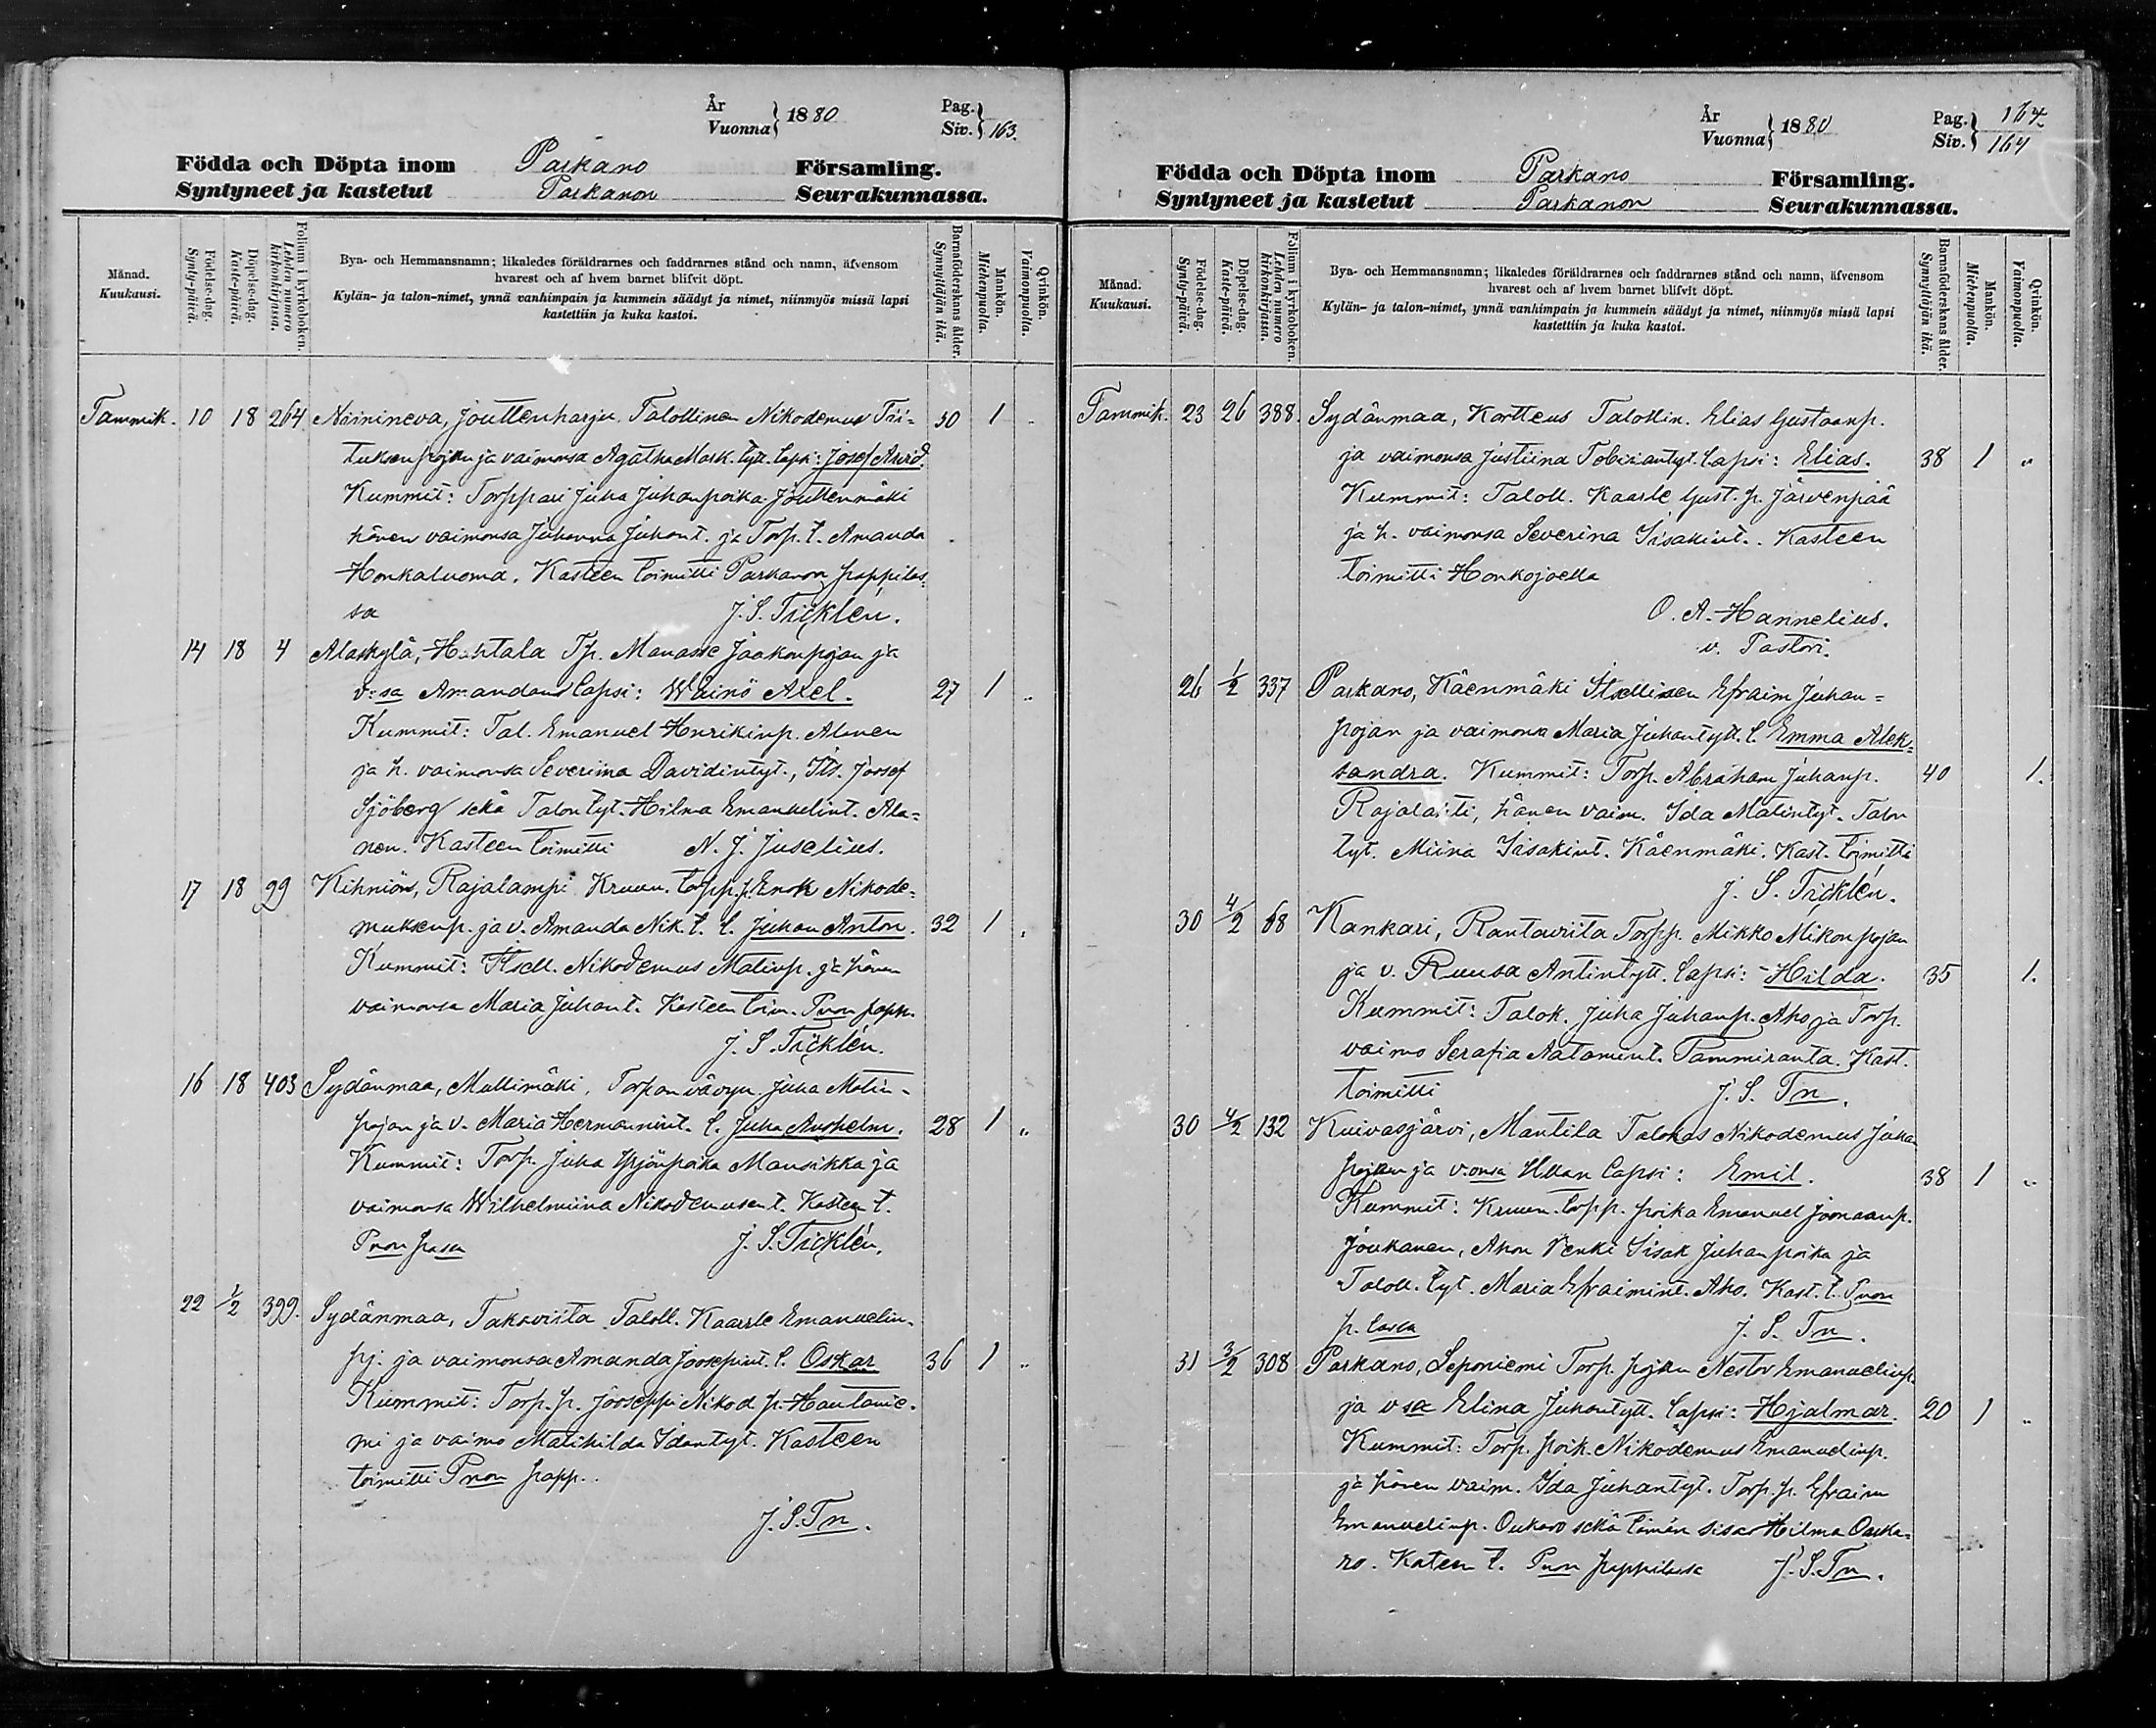 År
Vuonna } 1880
Pag.
Siv. } 163.
Födda och Döpta inom Parkano Församling.
Syntyneet ja kastetut Parkanon Seurakunnassa.
Månad.
Kuukausi.
Födelse-dag.
Synty-päivä.
Döpelse-dag.
Kaste-päivä.
Folium i kyrkoboken.
Lehden numero kirkonkirjassa.
Bya- och Hemmansnamn; likaledes föräldrarnes och faddrarnes stånd och namn, äfvensom
hvarest och af hvem barnet blifvit döpt.
Kylän- ja talon-nimet, ynnä vanhimpain ja kummein säädyt ja nimet, niinmyös missä lapsi
kastettiin ja kuka kastoi.
Barnaföderskans ålder.
Synnyttäjän ikä.
Mankön.
Miehenpuolta.
Qvinkön.
Vaimonpuolta.
Tammik. 10 18 264 Niinineva, Jouttenharju. Talollinen Nikodemus Trii- 30 1 "
tuksenpojan ja vaimonsa Agatha Mark. tytt. lapsi: Josef Arvid.
Kummit: Torppari Juha Juhanpoika Jouttenmäki
hänen vaimonsa Juhanna Juhant. ja Torp. t. Amanda
Honkaluoma. Kasteen toimitti Parkanon pappilas-
sa J. S. Ticklén.
14 18 4 Alaskylä, Hahtala Tp. Manasse Jaakonpojan ja
v:sa Amandan lapsi: Wäinö Axel. 27 1 "
Kummit: Tal. Emanuel Henrikinp. Alanen
ja h. vaimonsa Severiina Davidintyt., Its. Joosef
Sjöberg sekä Talon tyt. Hilma Emanuelint. Ala-
nen. Kasteen toimitti N. J. Juselius.
17 18 99 Kihniön, Rajalampi Kruun. torpp. p. Enok Nikode-
muksenp. ja v. Amanda Nik. t. l. Juhan Anton. 32 1 "
Kummit: Itsell. Nikodemus Matinp. ja hänen
vaimonsa Maria Juhant. Kasteen toim. Pnon papp.
J. S. Ticklén.
16 18 403 Sydänmaa, Mullimäki, Torpan vävyn Juha Matin-
pojan ja v. Maria Hermannint. l. Juha Anshelm. 28 1 "
Kummit: Torp. Juha Yrjönpoika Mansikka ja
vaimonsa Wilhelmiina Nikodemusent. Kasteen t.
Pnon passa J. S. Ticklén.
22 1/2 399. Sydänmaa, Takaviita Taloll. Kaarle Emanuelin-
pj. ja vaimonsa Amanda Joosepint. l. Oskar 36 1 "
Kummit: Torp. p. Jooseppi Nikod. p. Hautanie-
mi ja vaimo Matihilda Idantyt. Kasteen
toimitti Pnon papp.
J. S. Tn.
År
Vuonna } 1880
Pag. 164.
Siv. } 164
Födda och Döpta inom Parkano Församling.
Syntyneet ja kastetut Parkanon Seurakunnassa.
Månad.
Kuukausi.
Födelse-dag.
Synty-päivä.
Döpelse-dag.
Kaste-päivä.
Folium i kyrkoboken.
Lehden numero kirkonkirjassa.
Bya- och Hemmansnamn; likaledes föräldrarnes och faddrarnes stånd och namn, äfvensom
hvarest och af hvem barnet blifvit döpt.
Kylän- ja talon-nimet, ynnä vanhimpain ja kummein säädyt ja nimet, niinmyös missä lapsi
kastettiin ja kuka kastoi.
Barnaföderskans ålder.
Synnyttäjän ikä.
Mankön.
Miehenpuolta.
Qvinkön.
Vaimonpuolta.
Tammik. 23 26 388. Sydänmaa, Kortteus Talollin. Elias Gustaanp.
ja vaimonsa Justiina Tobiaantyt. lapsi: Elias. 38 1 "
Kummit: Taloll. Kaarle Gust. p. Järvenpää
ja h. vaimonsa Severina Iisakint. Kasteen
toimitti Honkojoella
O. A. Hannelius.
v. Pastori.
26 1/2 337 Parkano, Käenmäki Itsellisen Efraim Juhan-
pojan ja vaimonsa Maria Juhantytt. l. Emma Alek-
sandra. Kummit: Torp. Abraham Juhanp. 40 1.
Rajalahti, hänen vaim. Ida Matintyt. Talon
tyt. Miina Iisakint. Käenmäki. Kast. toimitti
J. S. Ticklén.
30 4/2 68 Kankari, Rantaviita Torpp. Mikko Mikonpojan
ja v. Ruusa Antintytt. lapsi: Hilda. 35 1.
Kummit: Talok. Juha Juhanp. Aho ja Torp.
vaimo Serafia Aatamint. Tammiranta. Kast.
toimitti J. S. Tn.
30 4/2 132 Kuivasjärvi, Mantila Talokas Nikodemus Juhan
pojan ja v:onsa Ullan lapsi: Emil. 38 1 "
Kummit: Kruun. torpp. poika Emanuel Joonaanp.
Joukanen, Ahon Renki Iisak Juhanpoika ja
Taloll. tyt. Maria Efraimint. Aho. Kast. t. Pnon
p. lassa J. S. Tn.
31 3/2 308 Parkano, Leponiemi Torp. pojan Nestor Emanuelinp.
ja vsa Elina Juhantytt. lapsi: Hjalmar. 20 1 "
Kummit: Torp. poik. Nikodemus Emanuelinp.
ja hänen vaim. Ida Juhantyt. Torp. p. Efraim
Emanuelinp. sekä tämän sisar Hilma
Kasteen t. Pnon pappilassa J. S. Tn.